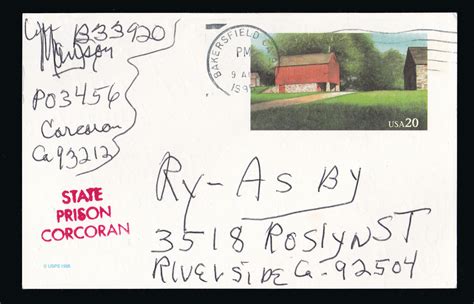 CM B33920
Manson
PO 3456
Corcoran
Ca 93212
STATE
PRISON
CORCORAN
© USPS 1995
BAKERSFIELD CA
PM
USA20
Ry-As By
3518 Roslyn ST
RIVERSIDE Ca-92504